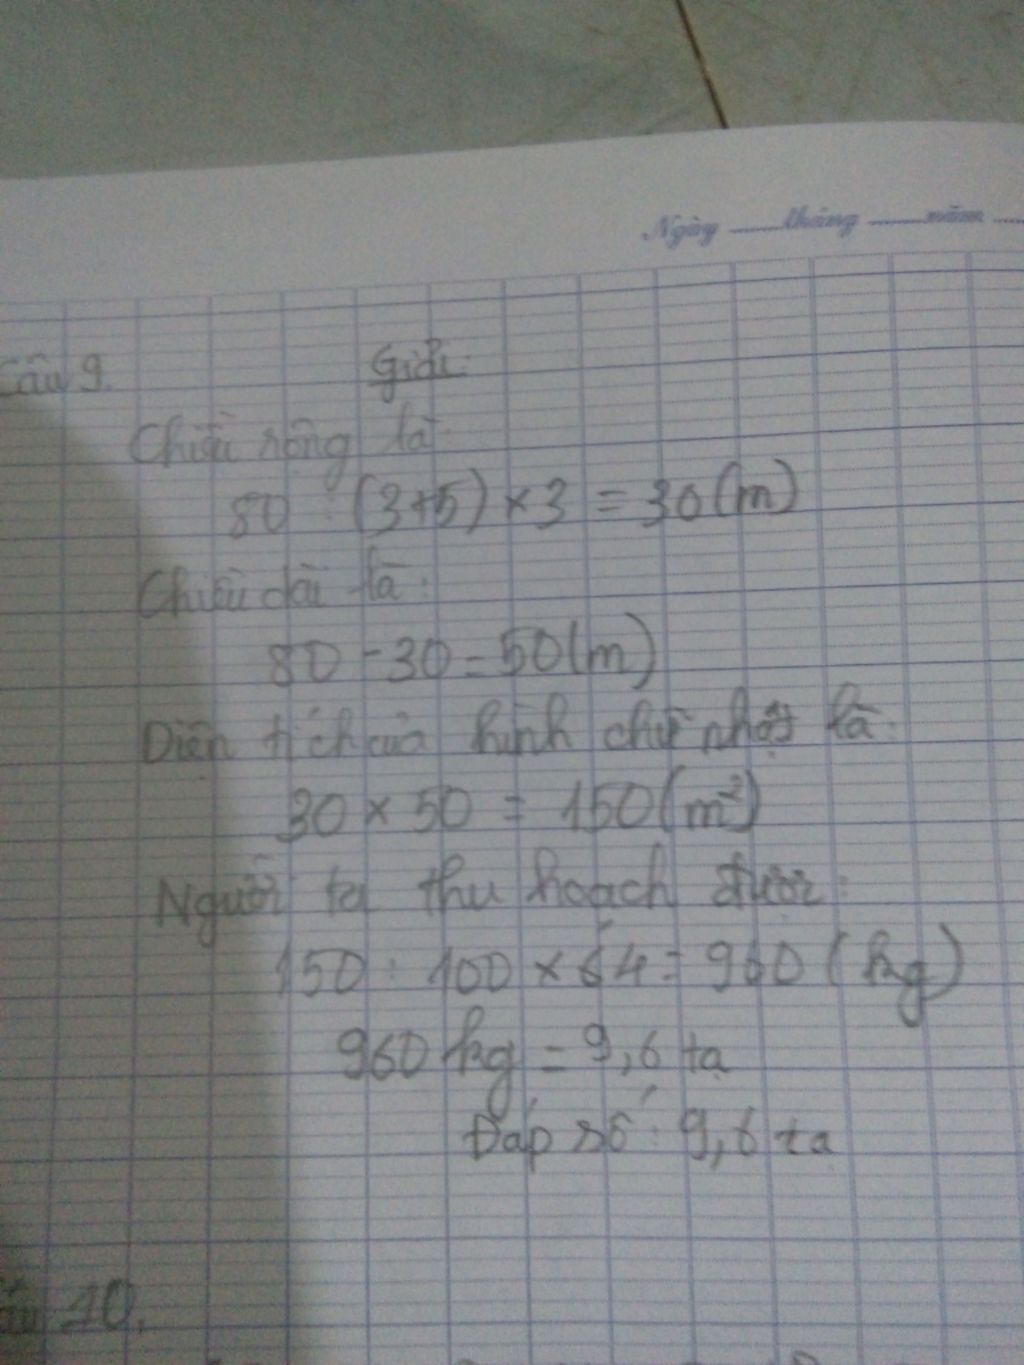 Ngày ........ tháng ........ năm ....
Câu 9. Giải:
Chiều rộng là:
80 : (3+5) × 3 = 30 (m)
Chiều dài là:
80 - 30 = 50 (m)
Diện tích của hình chữ nhật là:
30 × 50 = 150 (m²)
Người ta thu hoạch được:
150 : 100 × 64 = 960 (kg)
960 kg = 9,6 tạ
Đáp số: 9,6 tạ
Câu 10.